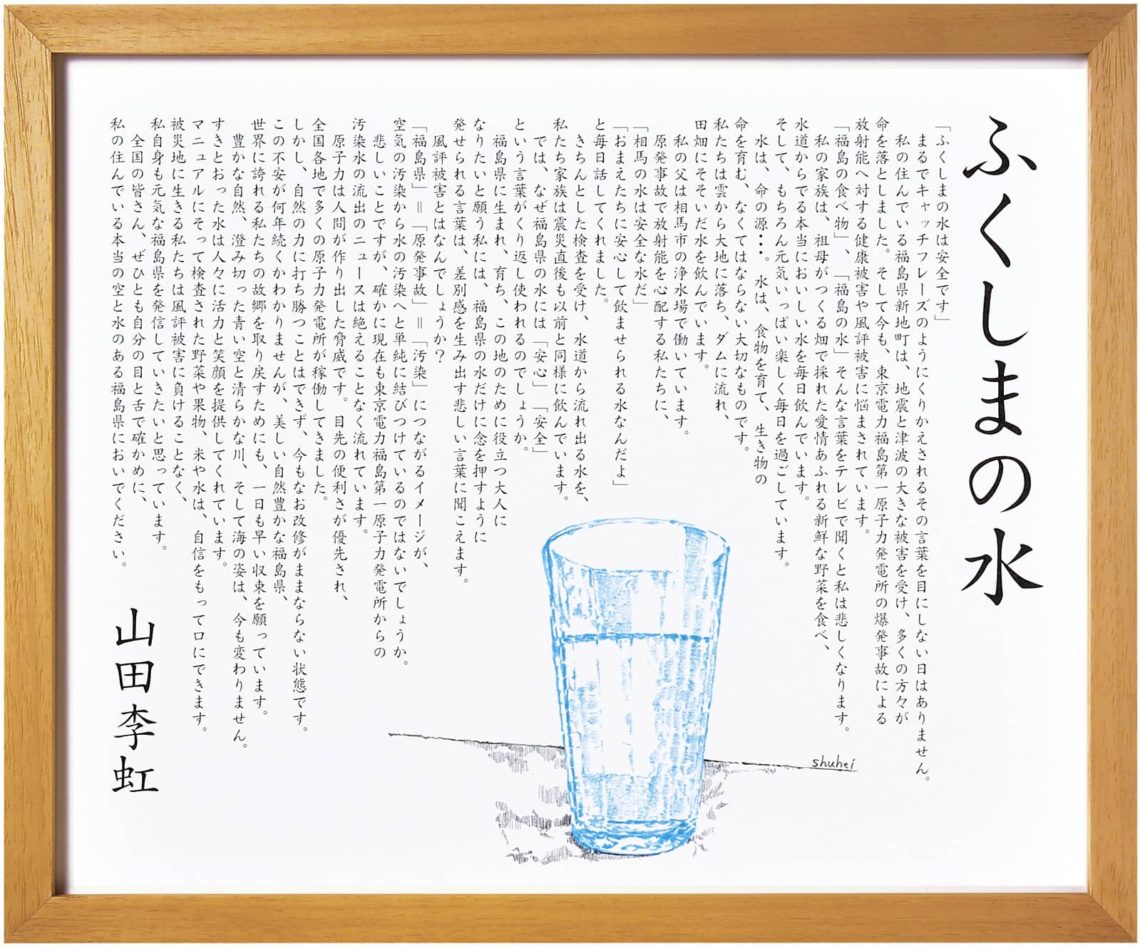 ふくしまの水
「ふくしまの水は安全です」
まるでキャッチフレーズのようにくりかえされるその言葉を目にしない日はありません。
私の住んでいる福島県新地町は、地震と津波の大きな被害を受け、多くの方々が
命を落としました。そして今も、東京電力福島第一原子力発電所の爆発事故による
放射能へ対する健康被害や風評被害に悩まされています。
「福島の食べ物」、「福島の水」そんな言葉をテレビで聞くと私は悲しくなります。
私の家族は、祖母がつくる畑で採れた愛情あふれる新鮮な野菜を食べ、
水道からでる本当においしい水を毎日飲んでいます。
そして、もちろん元気いっぱい楽しく毎日を過ごしています。
水は、命の源・・・ 水は、食物を育て、生き物の
命を育む、なくてはならない大切なものです。
私たちは雲から大地に落ち、ダムに流れ、
田畑にそそいだ水を飲んでいます。
私の父は相馬市の浄水場で働いています。
原発事故で放射能を心配する私たちに、
「相馬の水は安全な水だ」
「おまえたちに安心して飲ませられる水なんだよ」
と毎日話してくれました。
きちんとした検査を受け、水道から流れ出る水を、
私たち家族は震災直後も以前と同様に飲んでいます。
では、なぜ福島県の水には「安心」「安全」
という言葉がくり返し使われるのでしょうか。
福島県に生まれ、育ち、この地のために役立つ大人に
なりたいと願う私には、福島県の水だけに念を押すように
発せられる言葉は、差別感を生み出す悲しい言葉に聞こえます。
風評被害とはなんでしょうか？
「福島県」＝「原発事故」＝「汚染」につながるイメージが、
空気の汚染から水の汚染へと単純に結びつけているのではないでしょうか。
悲しいことですが、確かに現在も東京電力福島第一原子力発電所からの
汚染水の流出のニュースは絶えることなく流れています。
原子力は人間が作り出した脅威です。目先の便利さが優先され、
全国各地で多くの原子力発電所が稼働してきました。
しかし、自然の力に打ち勝つことはできず、今もなお改修がままならない状態です。
この不安が何年続くかわかりませんが、美しい自然豊かな福島県、
世界に誇れる私たちの故郷を取り戻すためにも、一日も早い収束を願っています。
豊かな自然、澄み切った青い空と清らかな川、そして海の姿は、今も変わりません。
すきとおった水は人々に活力と笑顔を提供してくれています。
マニュアルにそって検査された野菜や果物、米や水は、自信をもって口にできます。
被災地に生きる私たちは風評被害に負けることなく、
私自身も元気な福島県を発信していきたいと思っています。
全国の皆さん、ぜひとも自分の目と舌で確かめに、
私の住んでいる本当の空と水のある福島県においでください。
山田李虹
shuhei